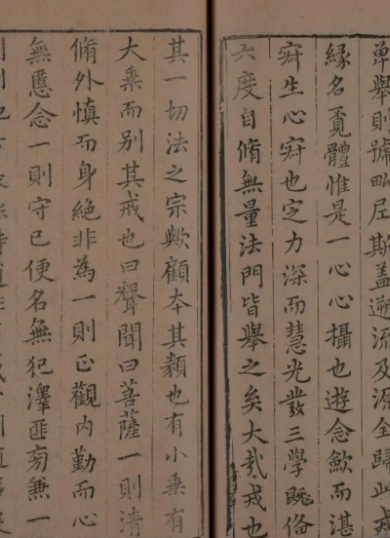 單舉則號毗尼斯盖遡流及源全歸此戒
緣名覔體惟是一心心攝也遊念歛而湛
寂生心寂也定力深而慧光發三學既俻
六度自脩無量法門皆舉之矣大哉戒也
其一切法之宗歟顧本其類也有小乘有
大乘而别其戒也曰聲聞曰菩薩一則清
脩外慎而身絶非為一則正觀内勤而心
無慝念一則守已便名無犯澤匪旁兼一